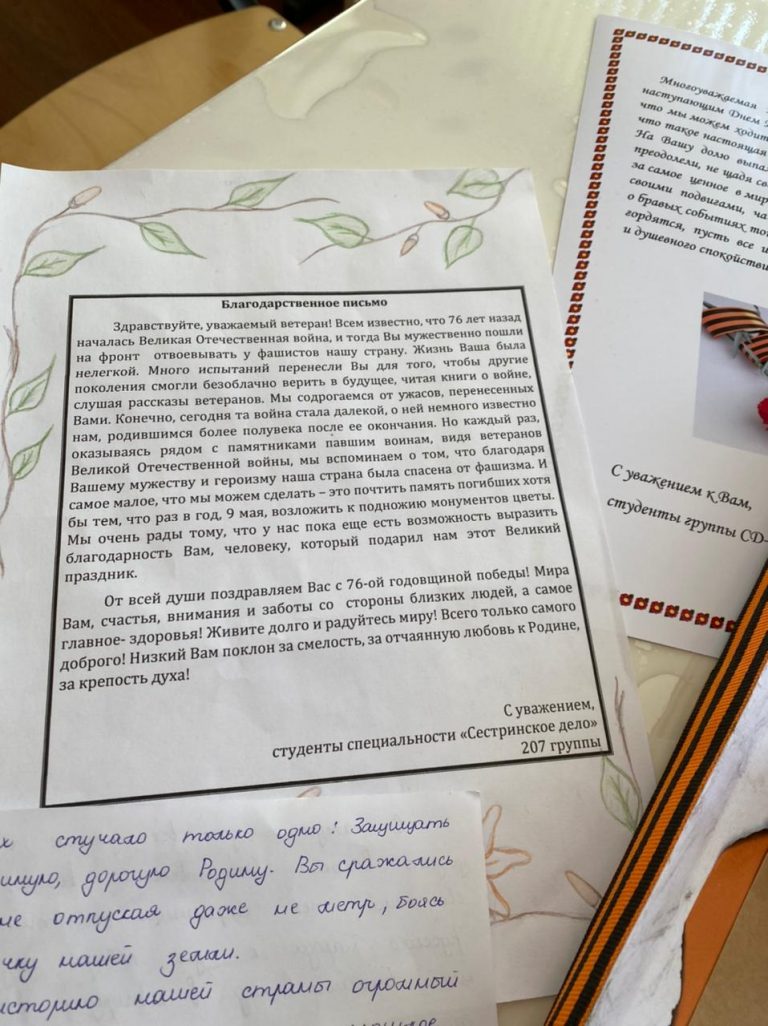 Благодарственное письмо
Здравствуйте, уважаемый ветеран! Всем известно, что 76 лет назад
началась Великая Отечественная война, и тогда Вы мужественно пошли
на фронт отвоевывать у фашистов нашу страну. Жизнь Ваша была
нелегкой. Много испытаний перенесли Вы для того, чтобы другие
поколения смогли безоблачно верить в будущее, читая книги о войне,
слушая рассказы ветеранов. Мы содрогаемся от ужасов, перенесенных
Вами. Конечно, сегодня та война стала далекой, о ней немного известно
нам, родившимся более полувека после ее окончания. Но каждый раз,
оказываясь рядом с памятниками павшим воинам, видя ветеранов
Великой Отечественной войны, мы вспоминаем о том, что благодаря
Вашему мужеству и героизму наша страна была спасена от фашизма. И
самое малое, что мы можем сделать – это почтить память погибших хотя
бы тем, что раз в год, 9 мая, возложить к подножию монументов цветы.
Мы очень рады тому, что у нас пока еще есть возможность выразить
благодарность Вам, человеку, который подарил нам этот Великий
праздник.
От всей души поздравляем Вас с 76-ой годовщиной победы! Мира
Вам, счастья, внимания и заботы со стороны близких людей, а самое
главное- здоровья! Живите долго и радуйтесь миру! Всего только самого
доброго! Низкий Вам поклон за смелость, за отчаянную любовь к Родине,
за крепость духа!
С уважением,
студенты специальности «Сестринское дело»
207 группы
Многоуважаемая
наступающим Днем
что мы можем ходить
что такое настоящая
На Вашу долю выпа
преодолели, не щадя
за самое ценное в мир
своими подвигами,
о бравых событиях
гордятся, пусть все
и душевного спокойстви
С уважением к Вам,
студенты группы СД-
х стучало только одно: Защищать
дорогую Родину. Вы сражались
не отпуская даже не метр, боясь
чку нашей земли.
историю нашей страны огромный